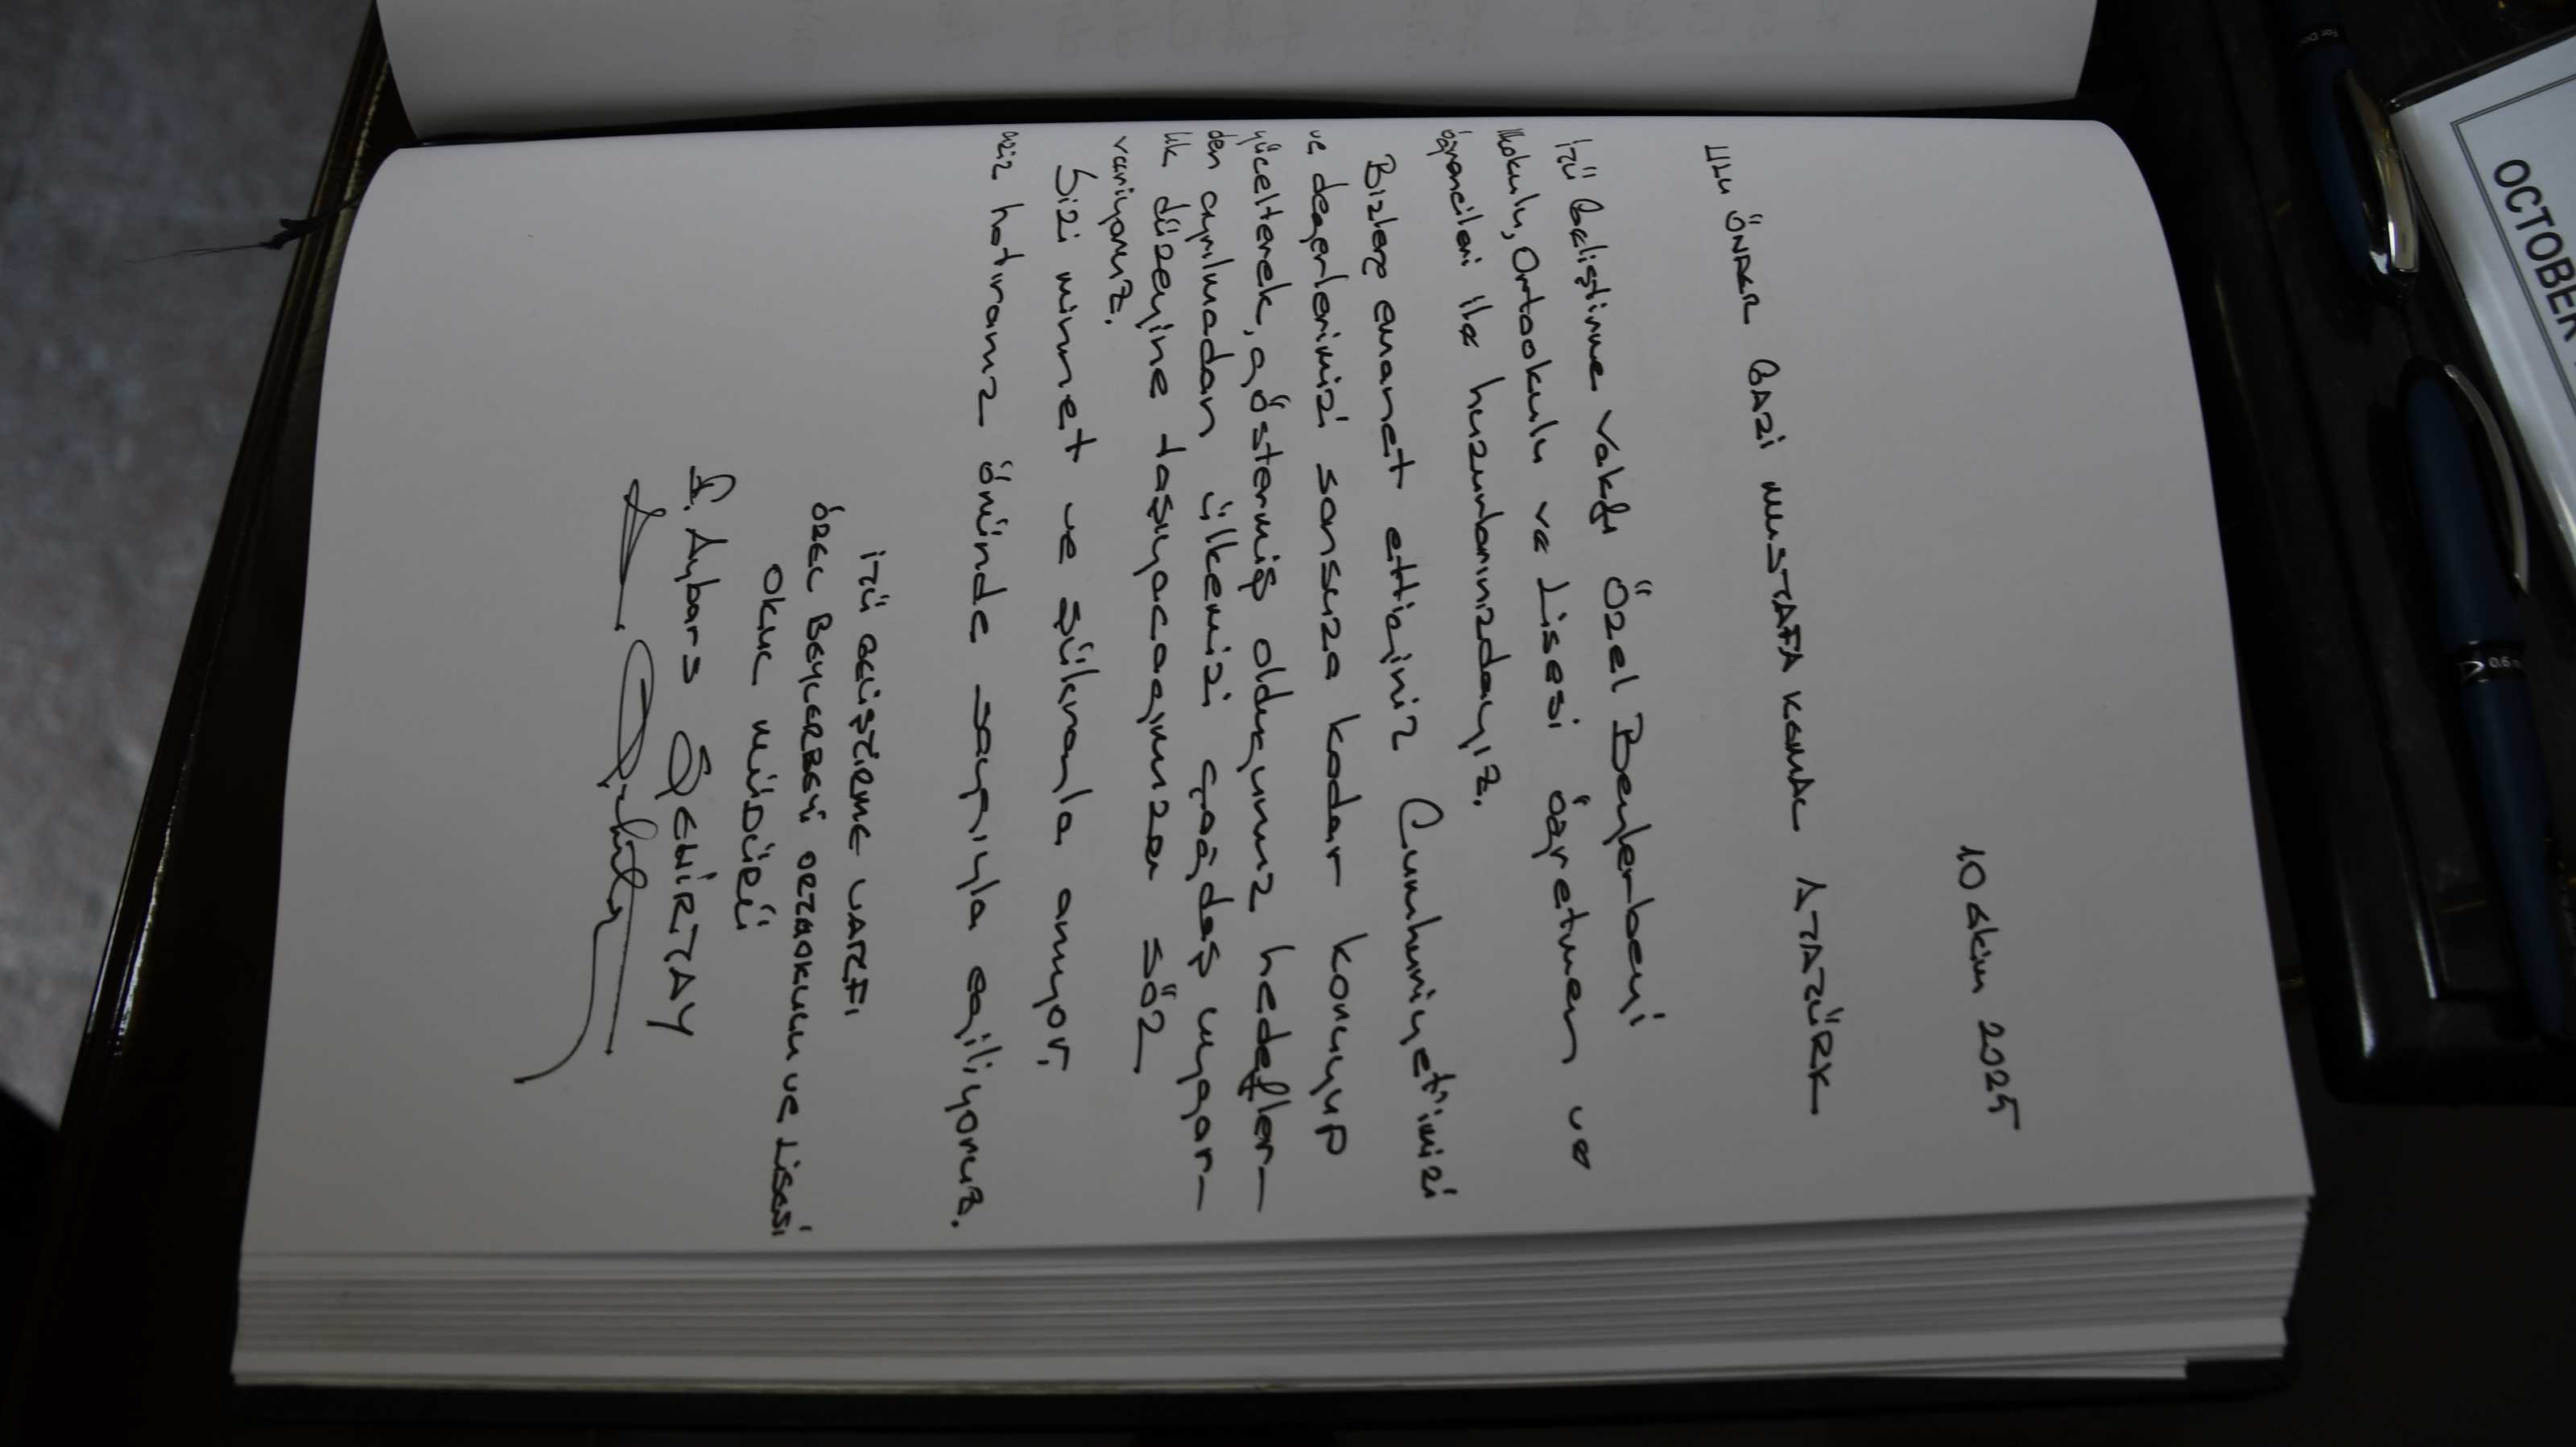 10 Ekim 2025
Ulu ÖNDER GAZİ MUSTAFA KEMAL ATATÜRK
İTÜ Geliştirme Vakfı Özel Beylerbeyi
İlkokulu, Ortaokulu ve Lisesi öğretmen ve
öğrencileri ile huzurlarınızdayız.
Bizlere emanet ettiğiniz Cumhuriyetimizi
ve değerlerimizi sonsuza kadar koruyup
yücelterek, göstermiş olduğunuz hedefler-
den ayrılmadan ülkemizi çağdaş uygar-
lık düzeyine taşıyacağımıza söz
veriyoruz.
Sizi minnet ve şükranla anıyor,
aziz hatıranız önünde saygıyla eğiliyoruz.
İTÜ GELİŞTİRME VAKFI
ÖZEL BEYLERBEYİ ORTAOKULU VE LİSESİ
OKUL MÜDÜRÜ
S. Aybars ŞEHİRTAY
OCTOBER